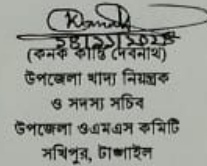 (কনক কান্তি দেবনাথ)
উপজেলা খাদ্য নিয়ন্ত্রক
ও সদস্য সচিব
উপজেলা ওএমএস কমিটি
সখিপুর, টাঙ্গাইল